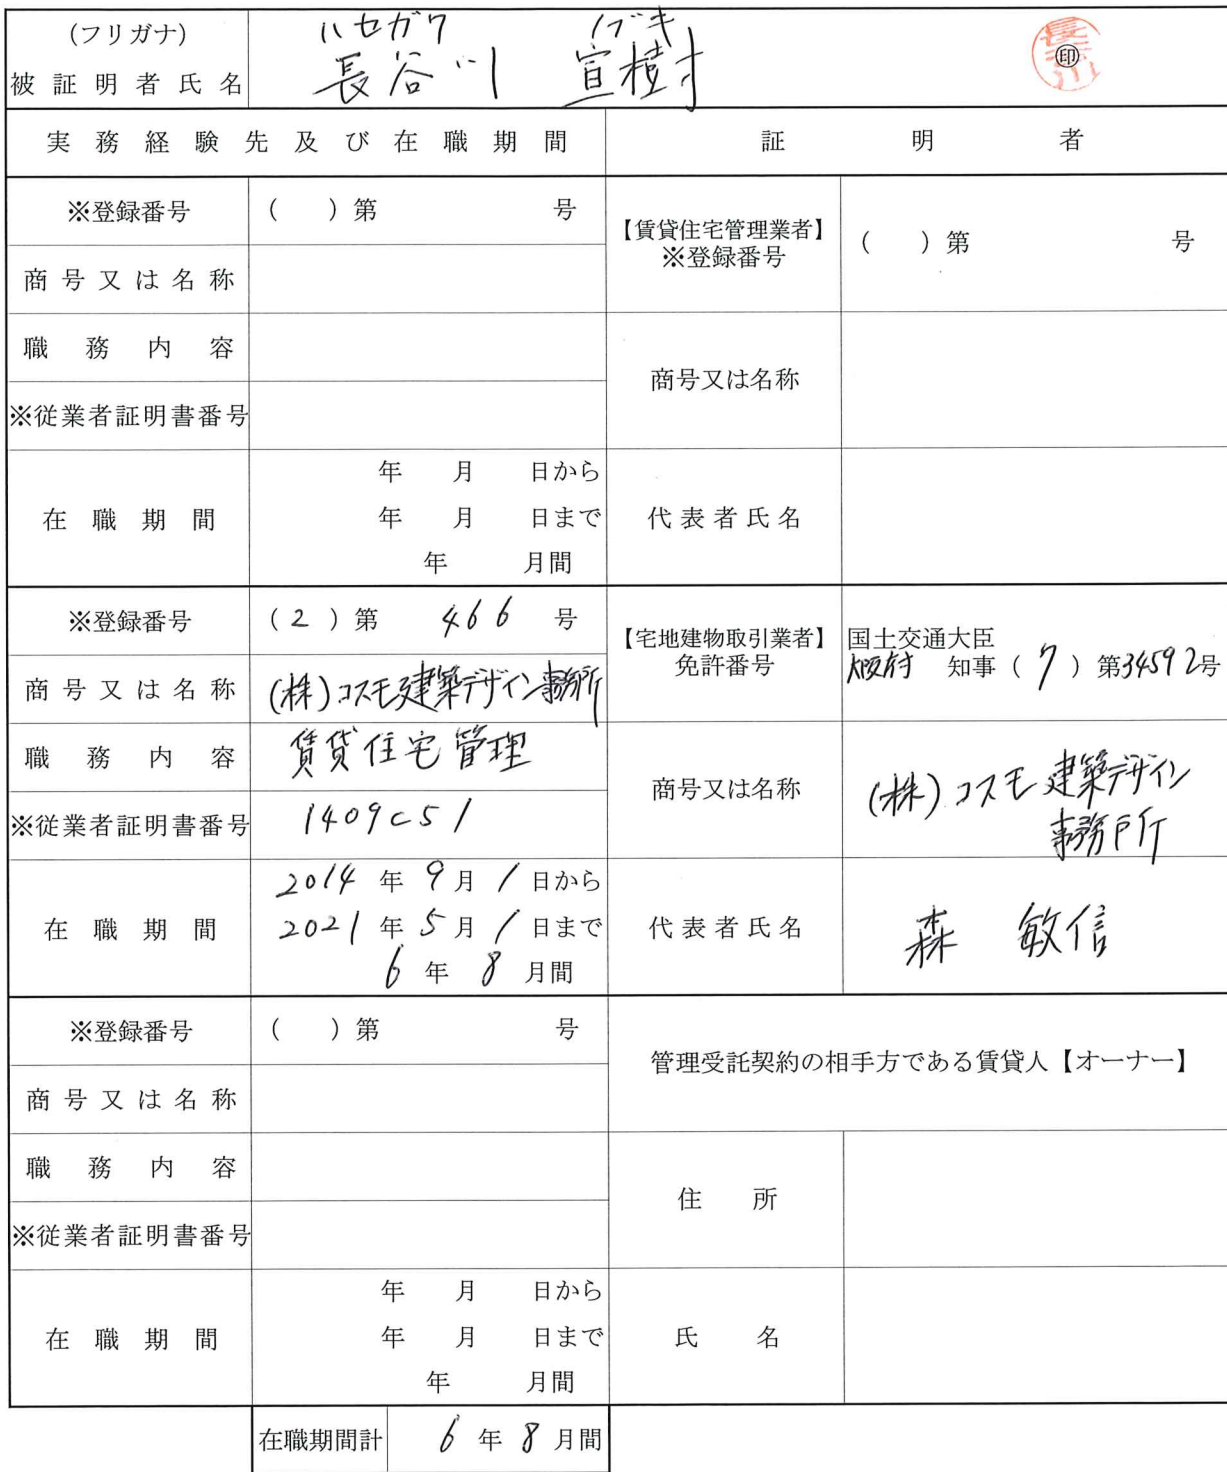 (フリガナ) ハセガワ ノブキ
被証明者氏名 長谷川 宣樹 ㊞
実務経験先及び在職期間 証明者
※登録番号 ( )第 号
【賃貸住宅管理業者】
※登録番号 ( )第 号
商号又は名称
職務内容
商号又は名称
※従業者証明書番号
在職期間
年 月 日から
年 月 日まで
年 月間
代表者氏名
※登録番号 (2)第 466 号
【宅地建物取引業者】
免許番号
国土交通大臣
大阪府 知事(7)第34592号
商号又は名称 (株)コスモ建築デザイン事務所
職務内容 賃貸住宅管理
商号又は名称
(株)コスモ建築デザイン
事務所
※従業者証明書番号 1409c51
在職期間
2014年9月1日から
2021年5月1日まで
6年8月間
代表者氏名 森 敏信
※登録番号 ( )第 号
管理受託契約の相手方である賃貸人【オーナー】
商号又は名称
職務内容
住所
※従業者証明書番号
在職期間
年 月 日から
年 月 日まで
年 月間
氏名
在職期間計 6年8月間